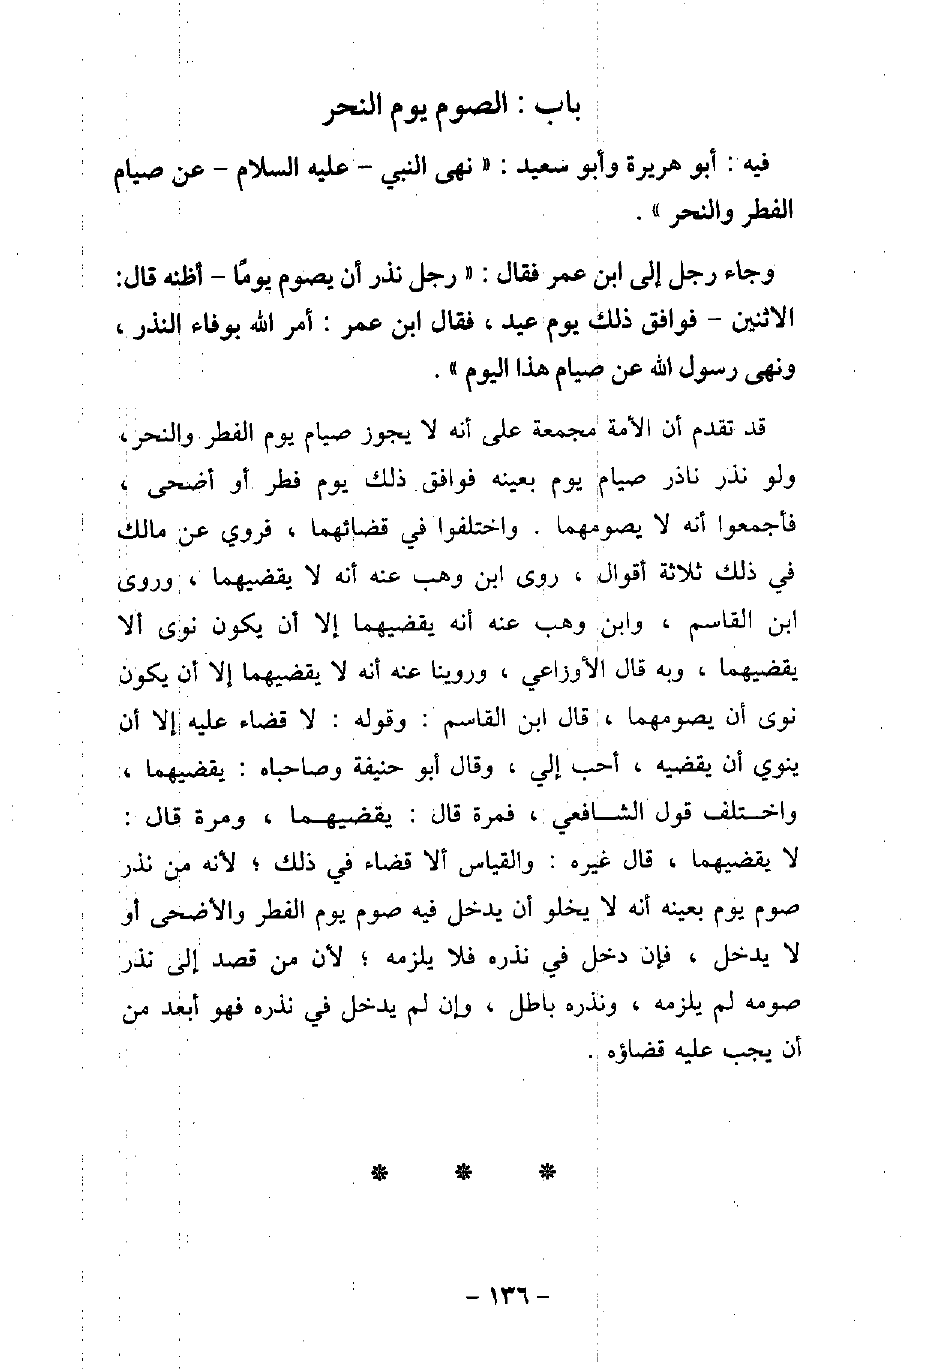 باب : الصوم يوم النحر
فيه : أبو هريرة وأبو سعيد : « نهى النبي - عليه السلام - عن صيام
الفطر والنحر » .
وجاء رجل إلى ابن عمر فقال : « رجل نذر أن يصوم يومًا - أظنه قال:
الاثنين - فوافق ذلك يوم عيد ، فقال ابن عمر : أمر الله بوفاء النذر ،
ونهى رسول الله عن صيام هذا اليوم » .
قد تقدم أن الأمة مجمعة على أنه لا يجوز صيام يوم الفطر والنحر،
ولو نذر ناذر صيام يوم بعينه فوافق ذلك يوم فطر أو أضحى ،
فأجمعوا أنه لا يصومهما . واختلفوا في قضائهما ، فروي عن مالك
في ذلك ثلاثة أقوال ، روى ابن وهب عنه أنه لا يقضيهما ، وروى
ابن القاسم ، وابن وهب عنه أنه يقضيهما إلا أن يكون نوى ألا
يقضيهما ، وبه قال الأوزاعي ، وروينا عنه أنه لا يقضيهما إلا أن يكون
نوى أن يصومهما ، قال ابن القاسم : وقوله : لا قضاء عليه إلا أن
ينوي أن يقضيه ، أحب إلي ، وقال أبو حنيفة وصاحباه : يقضيهما ،
واختلف قول الشافعي ، فمرة قال : يقضيهما ، ومرة قال :
لا يقضيهما ، قال غيره : والقياس ألا قضاء في ذلك ؛ لأنه من نذر
صوم يوم بعينه أنه لا يخلو أن يدخل فيه صوم يوم الفطر والأضحى أو
لا يدخل ، فإن دخل في نذره فلا يلزمه ؛ لأن من قصد إلى نذر
صومه لم يلزمه ، ونذره باطل ، وإن لم يدخل في نذره فهو أبعد من
أن يجب عليه قضاؤه .
* * *
- ١٣٦ -